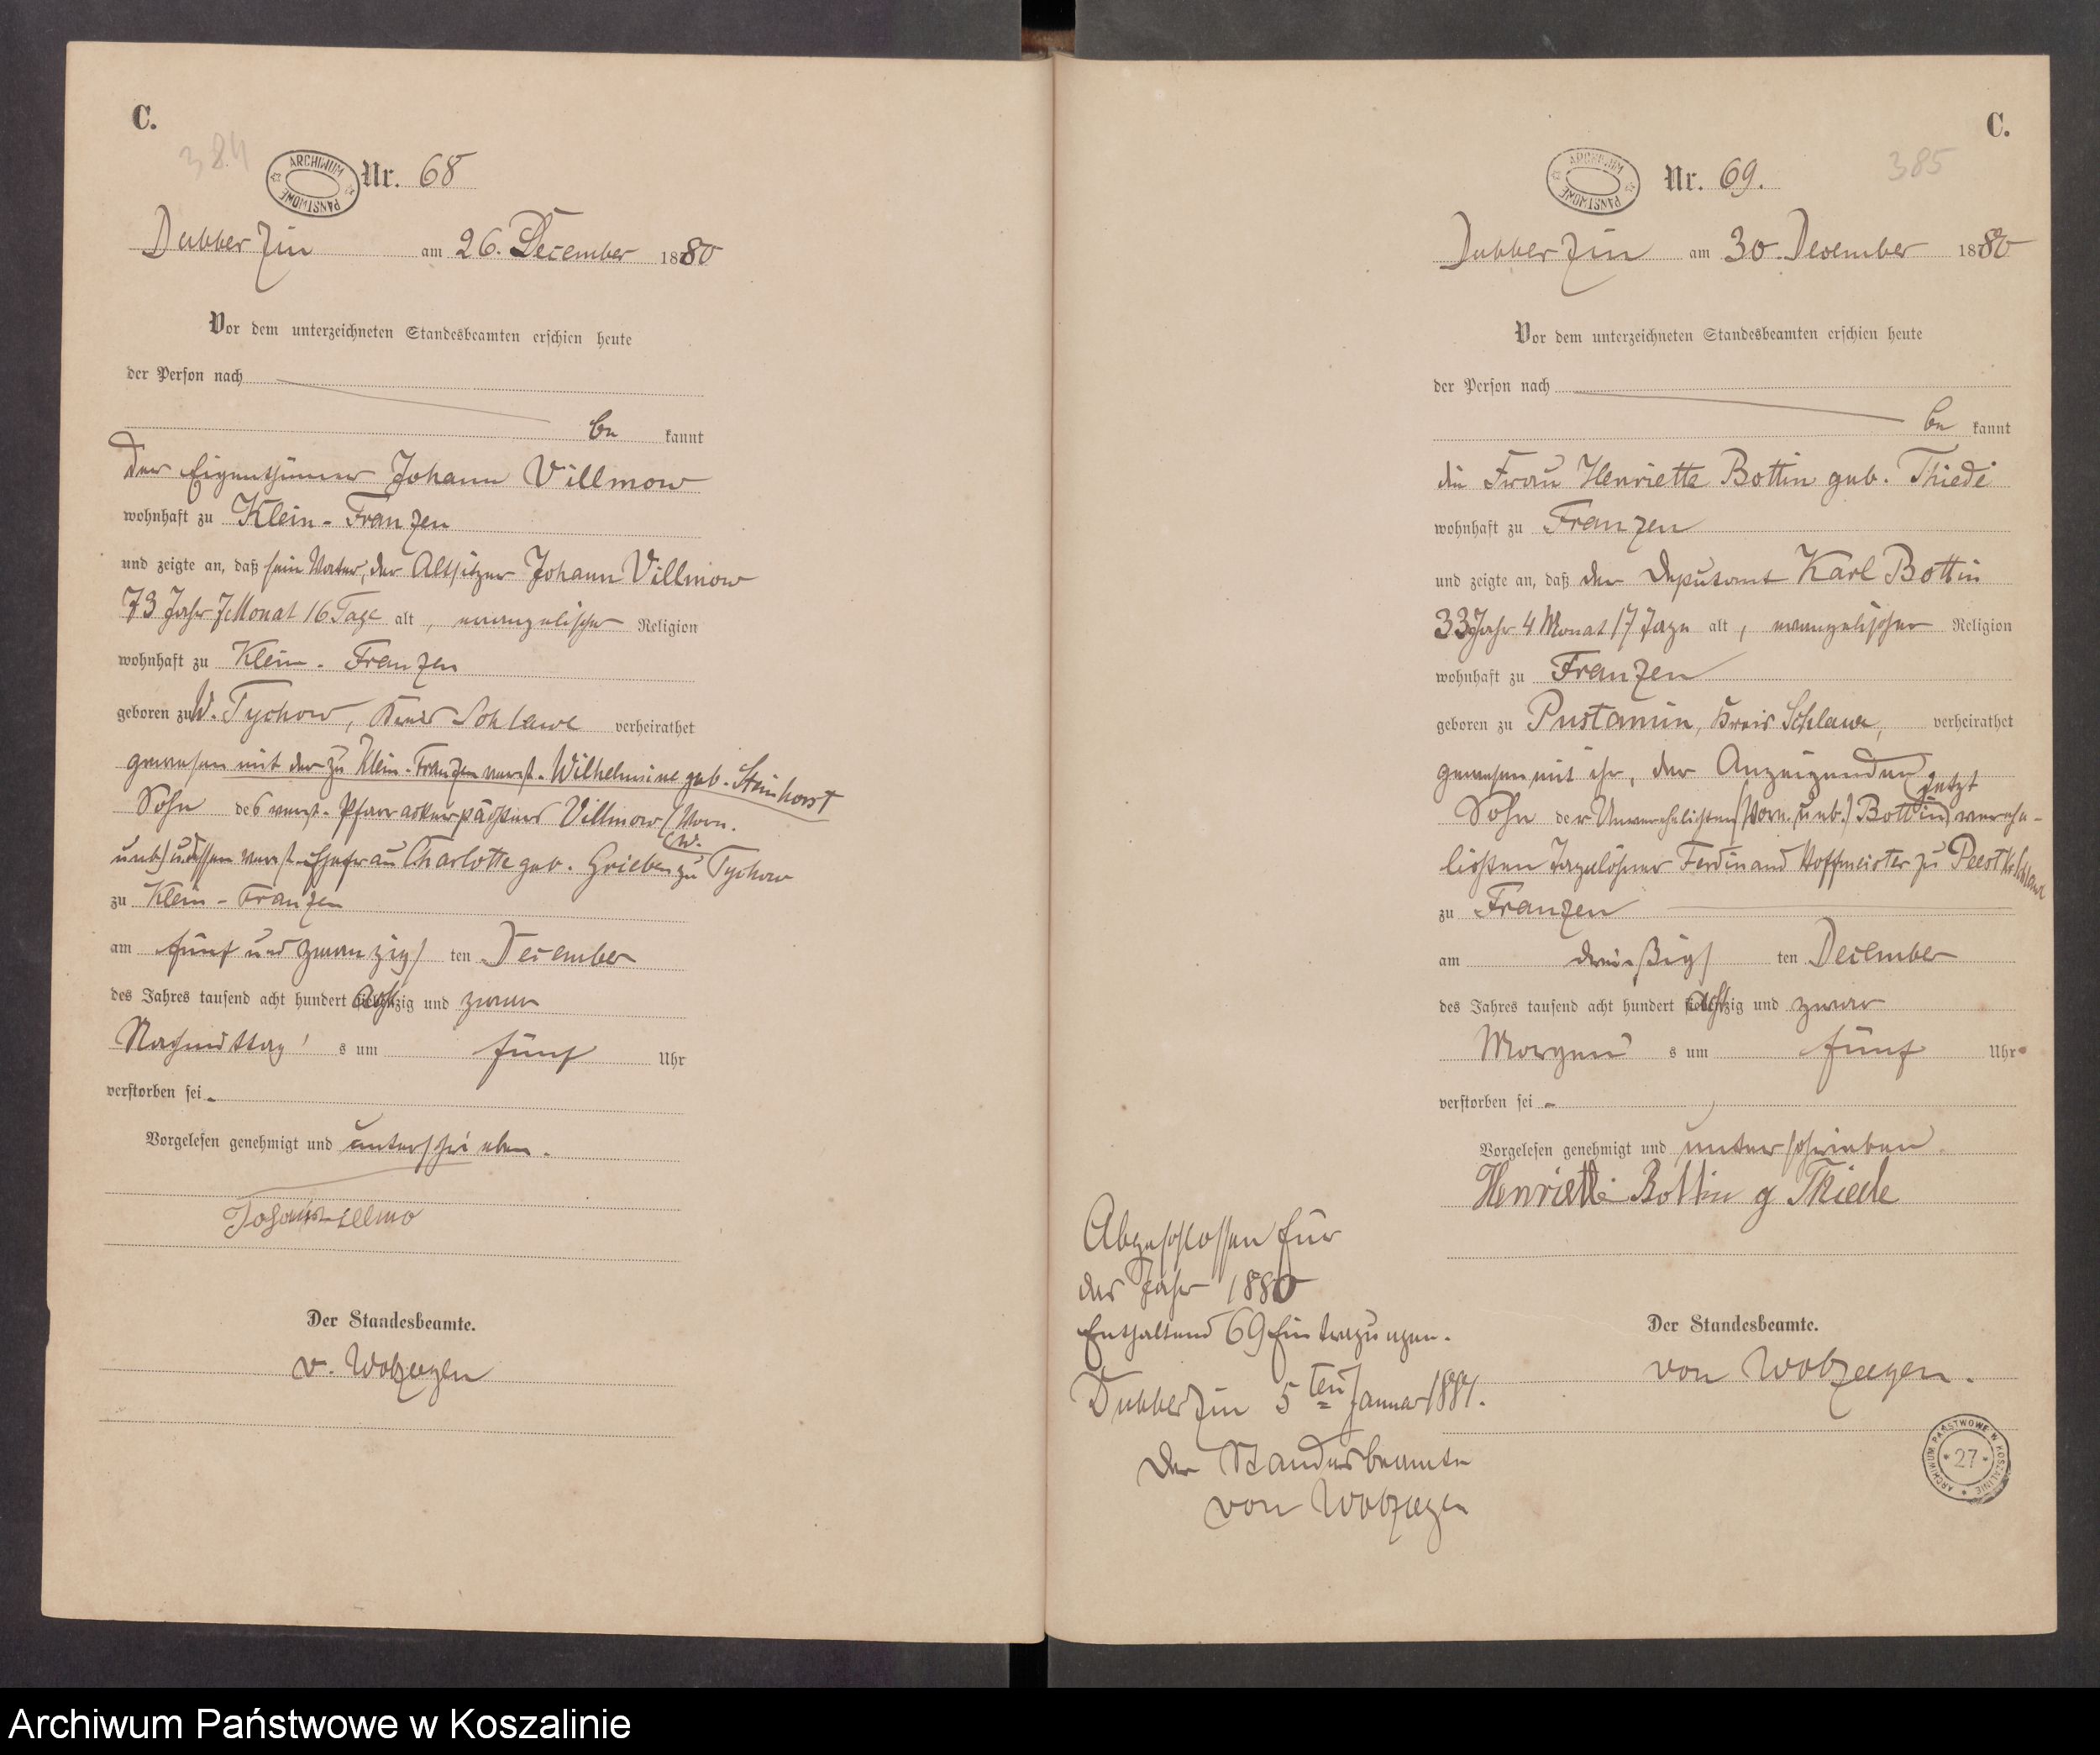 C.
384
ARCHIWUM PAŃSTWOWE
Nr. 68
Dubberzin am 26. December 1880
Vor dem unterzeichneten Standesbeamten erschien heute
der Person nach
be kannt
der Eigenthümer Johann Villmow
wohnhaft zu Klein-Franzen
und zeigte an, daß sein Vater, der Altsitzer Johann Villmow
73 Jahr 7 Monat 16 Tage alt, evangelischer Religion
wohnhaft zu Klein-Franzen
geboren zu W. Tychow, Kreis Schlawe verheirathet
gewesen mit der zu Klein-Franzen verst. Wilhelmine geb. Steinhorst
Sohn des verst. Pfarrackerpächters Villmow (Vorn.
unb.) u. dessen verst. Ehefrau Charlotte geb. Grieben zu (W. Tychow
zu Klein-Franzen
am fünf und zwanzigs ten December
des Jahres tausend acht hundert achtzig und zwar
Nachmittag s um fünf Uhr
verstorben sei.
Vorgelesen genehmigt und unterschrieben.
Der Standesbeamte.
v. Wobzegen
C.
385
ARCHIWUM PAŃSTWOWE
Nr. 69.
Dubberzin am 30. December 1880
Vor dem unterzeichneten Standesbeamten erschien heute
der Person nach
be kannt
die Frau Henriette Bottin geb. Thiede
wohnhaft zu Franzen
und zeigte an, daß der Deputant Karl Bottin
33 Jahr 4 Monat 17 Tage alt, evangelischer Religion
wohnhaft zu Franzen
geboren zu Pustamin, Kreis Schlawe, verheirathet
gewesen mit ihr, der Anzeigenden
Sohn der Unverehelichten (Vorn. unb.) Bottin, jetzt verehe-
lichten Tagelöhner Ferdinand Hoffmeister zu Peest Kr. Schlawe
zu Franzen
am dreißigs ten December
des Jahres tausend acht hundert achtzig und zwar
Morgen s um fünf Uhr
verstorben sei.
Vorgelesen genehmigt und unterschrieben.
Henriette Bottin g Thiede
Der Standesbeamte.
von Wobzegen.
Abgeschlossen für
das Jahr 1880
Enthaltend 69 Eintragungen.
Dubberzin 5ten Januar 1881.
Der Standesbeamte
von Wobzegen
ARCHIWUM PAŃSTWOWE W KOSZALINIE
27
Archiwum Państwowe w Koszalinie